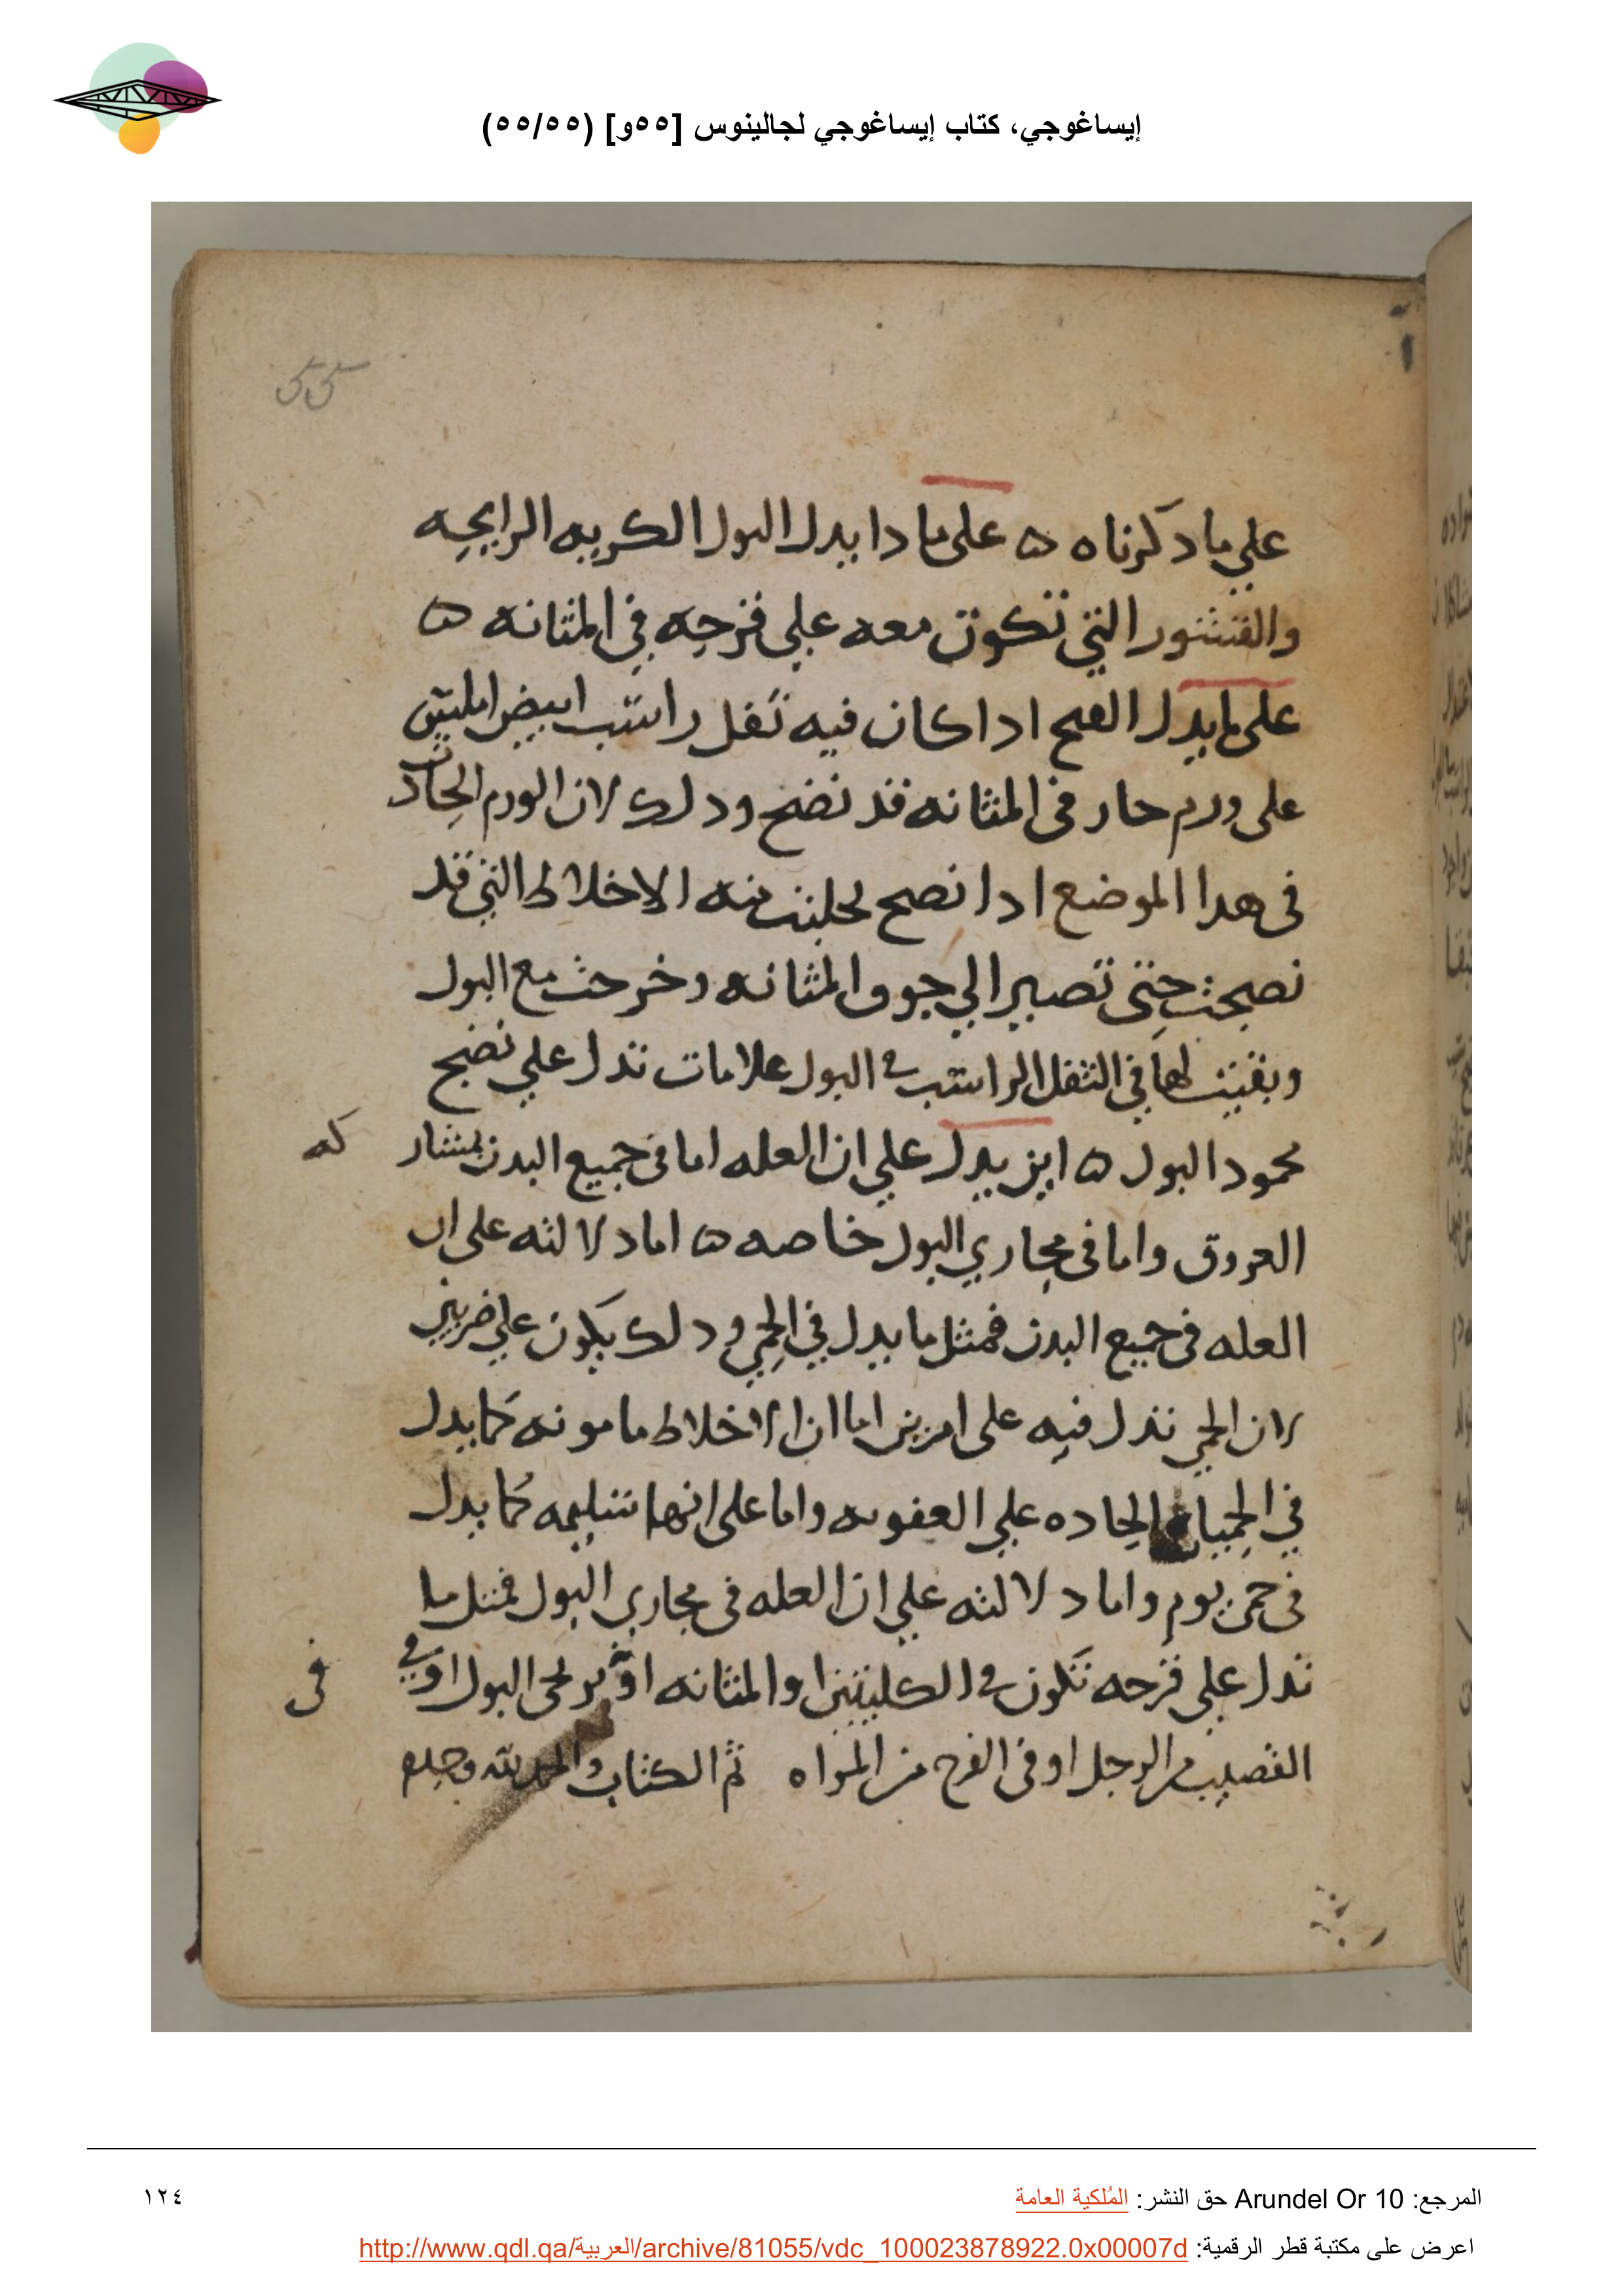 إيساغوجي، كتاب إيساغوجي لجالينوس [٥٥و] (٥٥/٥٥)
علي ما دكرناه ه على ما دا يدل البول الكريه الرايحه
والقشور التي تكون معه علي قرحه في المثانه ه
على ما يدل القيح ادا كان فيه تفل راسب ابيض املس
على ورم حار في المثانه قد نضج ودلك لان الورم الحادث
في هدا الموضع ادا نصح تحلبت منه الاخلاط التي قد
نصجت حتى تصير الي جوف المثانه وخرجت مع البول
وبقيت لها في الثفل الراسب في البول علامات تدل علي نضج
محمود البول ه اين يدل علي ان العله اما في جميع البدن
العروق واما في مجاري البول خاصه ه اما دلالته على ان
العله في جميع البدن فمثل ما يدل في الحمي ودلك يكون علي ضربين
لان الحمي تدل فيه على امرين اما ان الاخلاط مامونه كما يدل
في الحميات الحاده علي العفونه واما على انها سليمه كما يدل
في حمى يوم واما دلالته علي ان العله في مجاري البول فمثل ما
تدل علي قرحه تكون في الكليتين او المثانه او مجرى البول او في
القصيب من الرجل او في الفرج من المراه تم الكتاب والحمد لله وحده
المرجع: Arundel Or 10 حق النشر: المُلكية العامة
١٢٤
اعرض على مكتبة قطر الرقمية: http://www.qdl.qa/العربية/archive/81055/vdc_100023878922.0x00007d